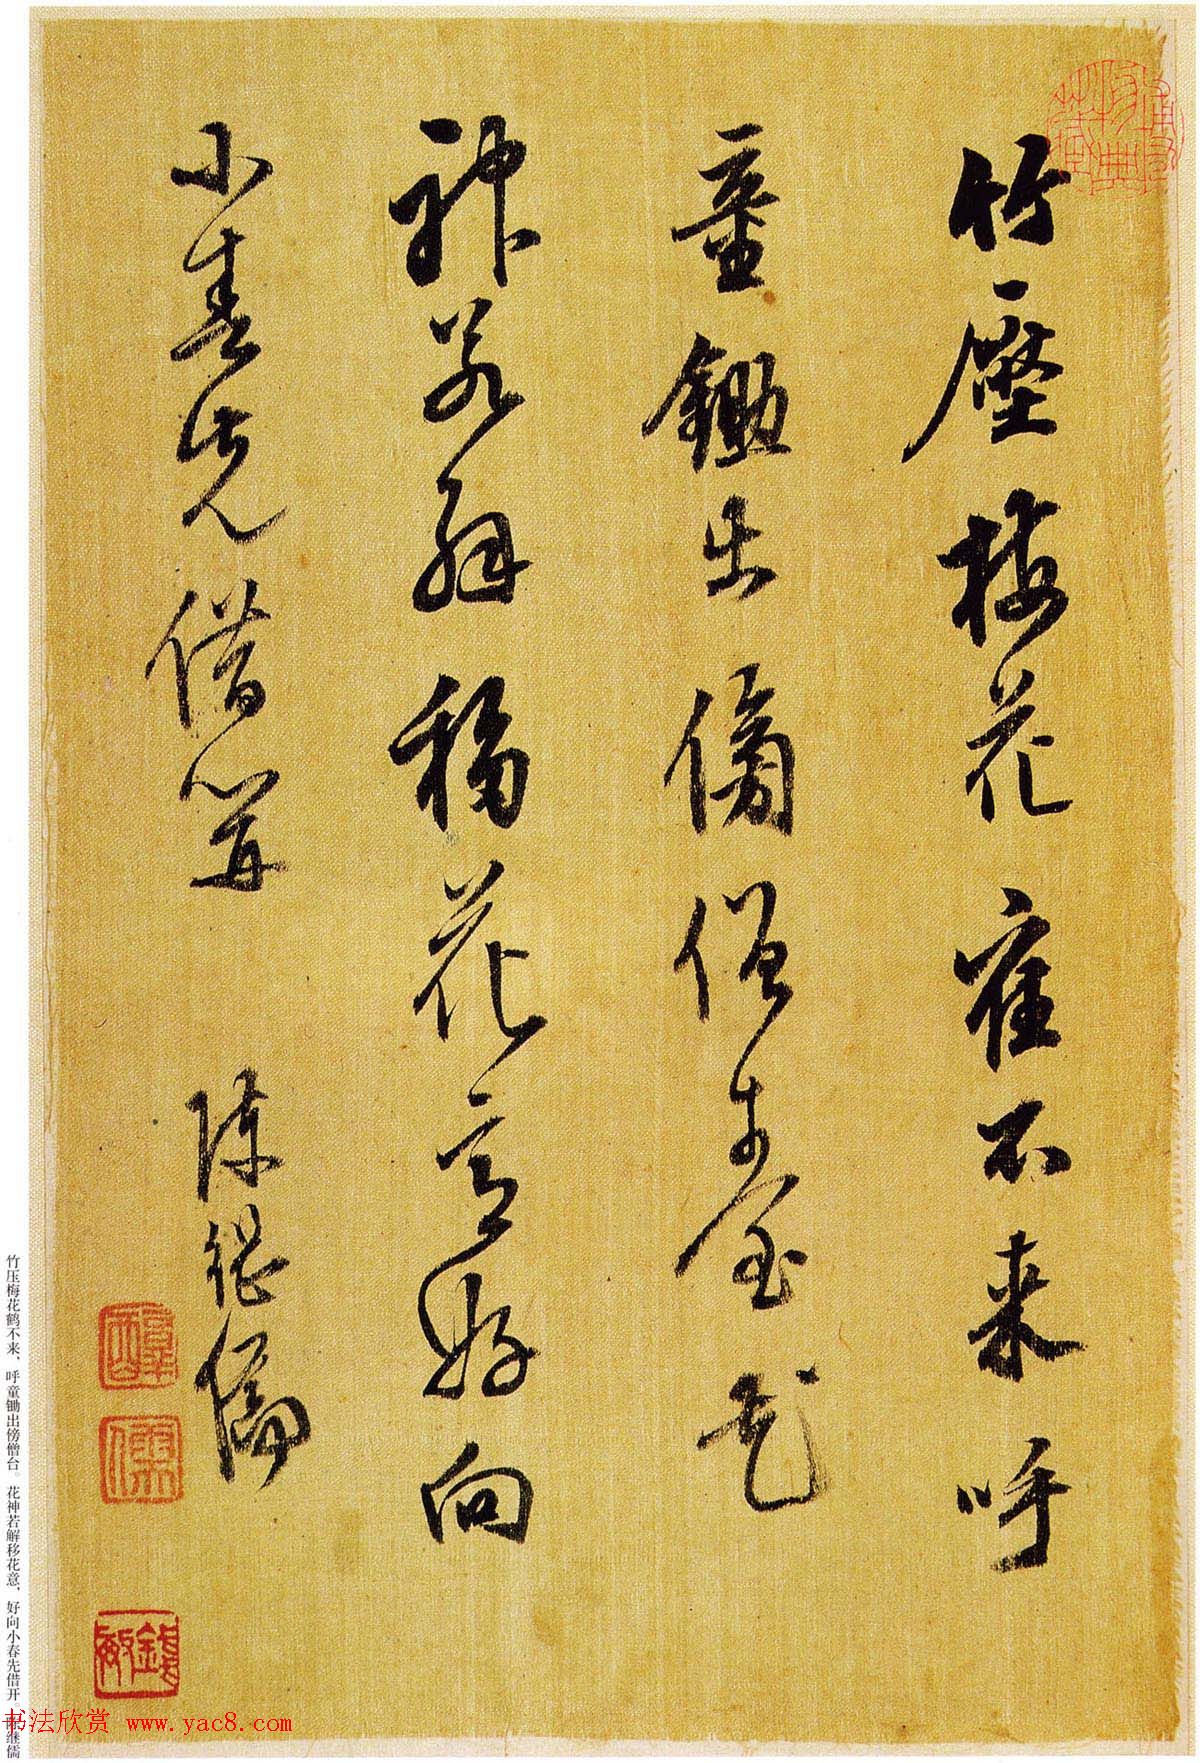 竹壓梅花崔不来呼
童鋤出傍僧臺花
神若解移花意好向
小春先借開 陳继儒
竹压梅花鹤不来，呼童锄出傍僧台。花神若解移花意，好向小春先借开。陈继儒
书法欣赏 www.yac8.com